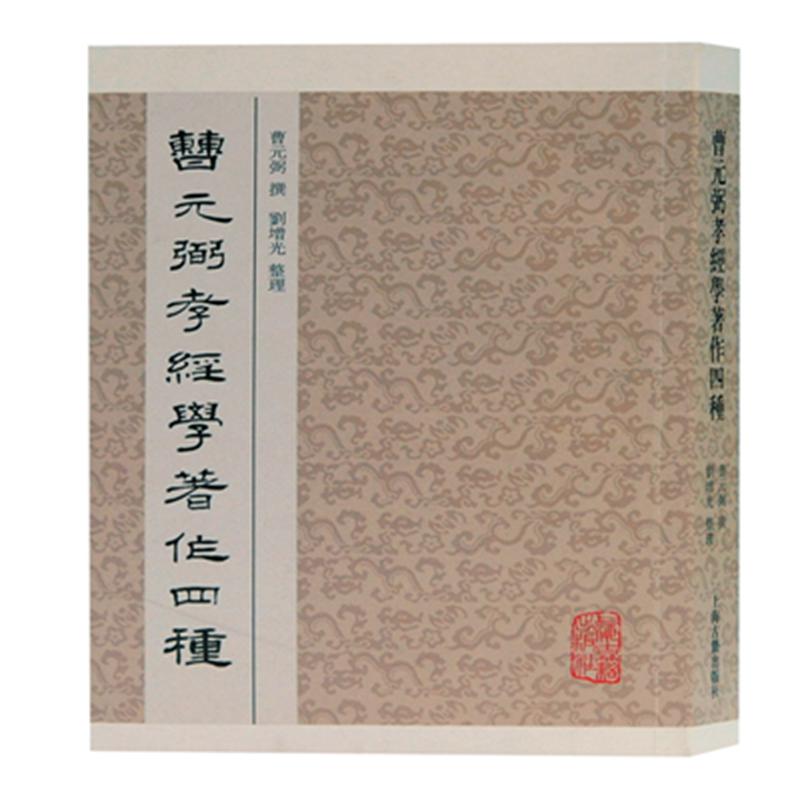 曹元弼孝經學著作四種
曹元弼 撰 劉增光 整理
曹元弼孝經學著作四種
曹元弼 撰
劉增光 整理
上海古籍出版社